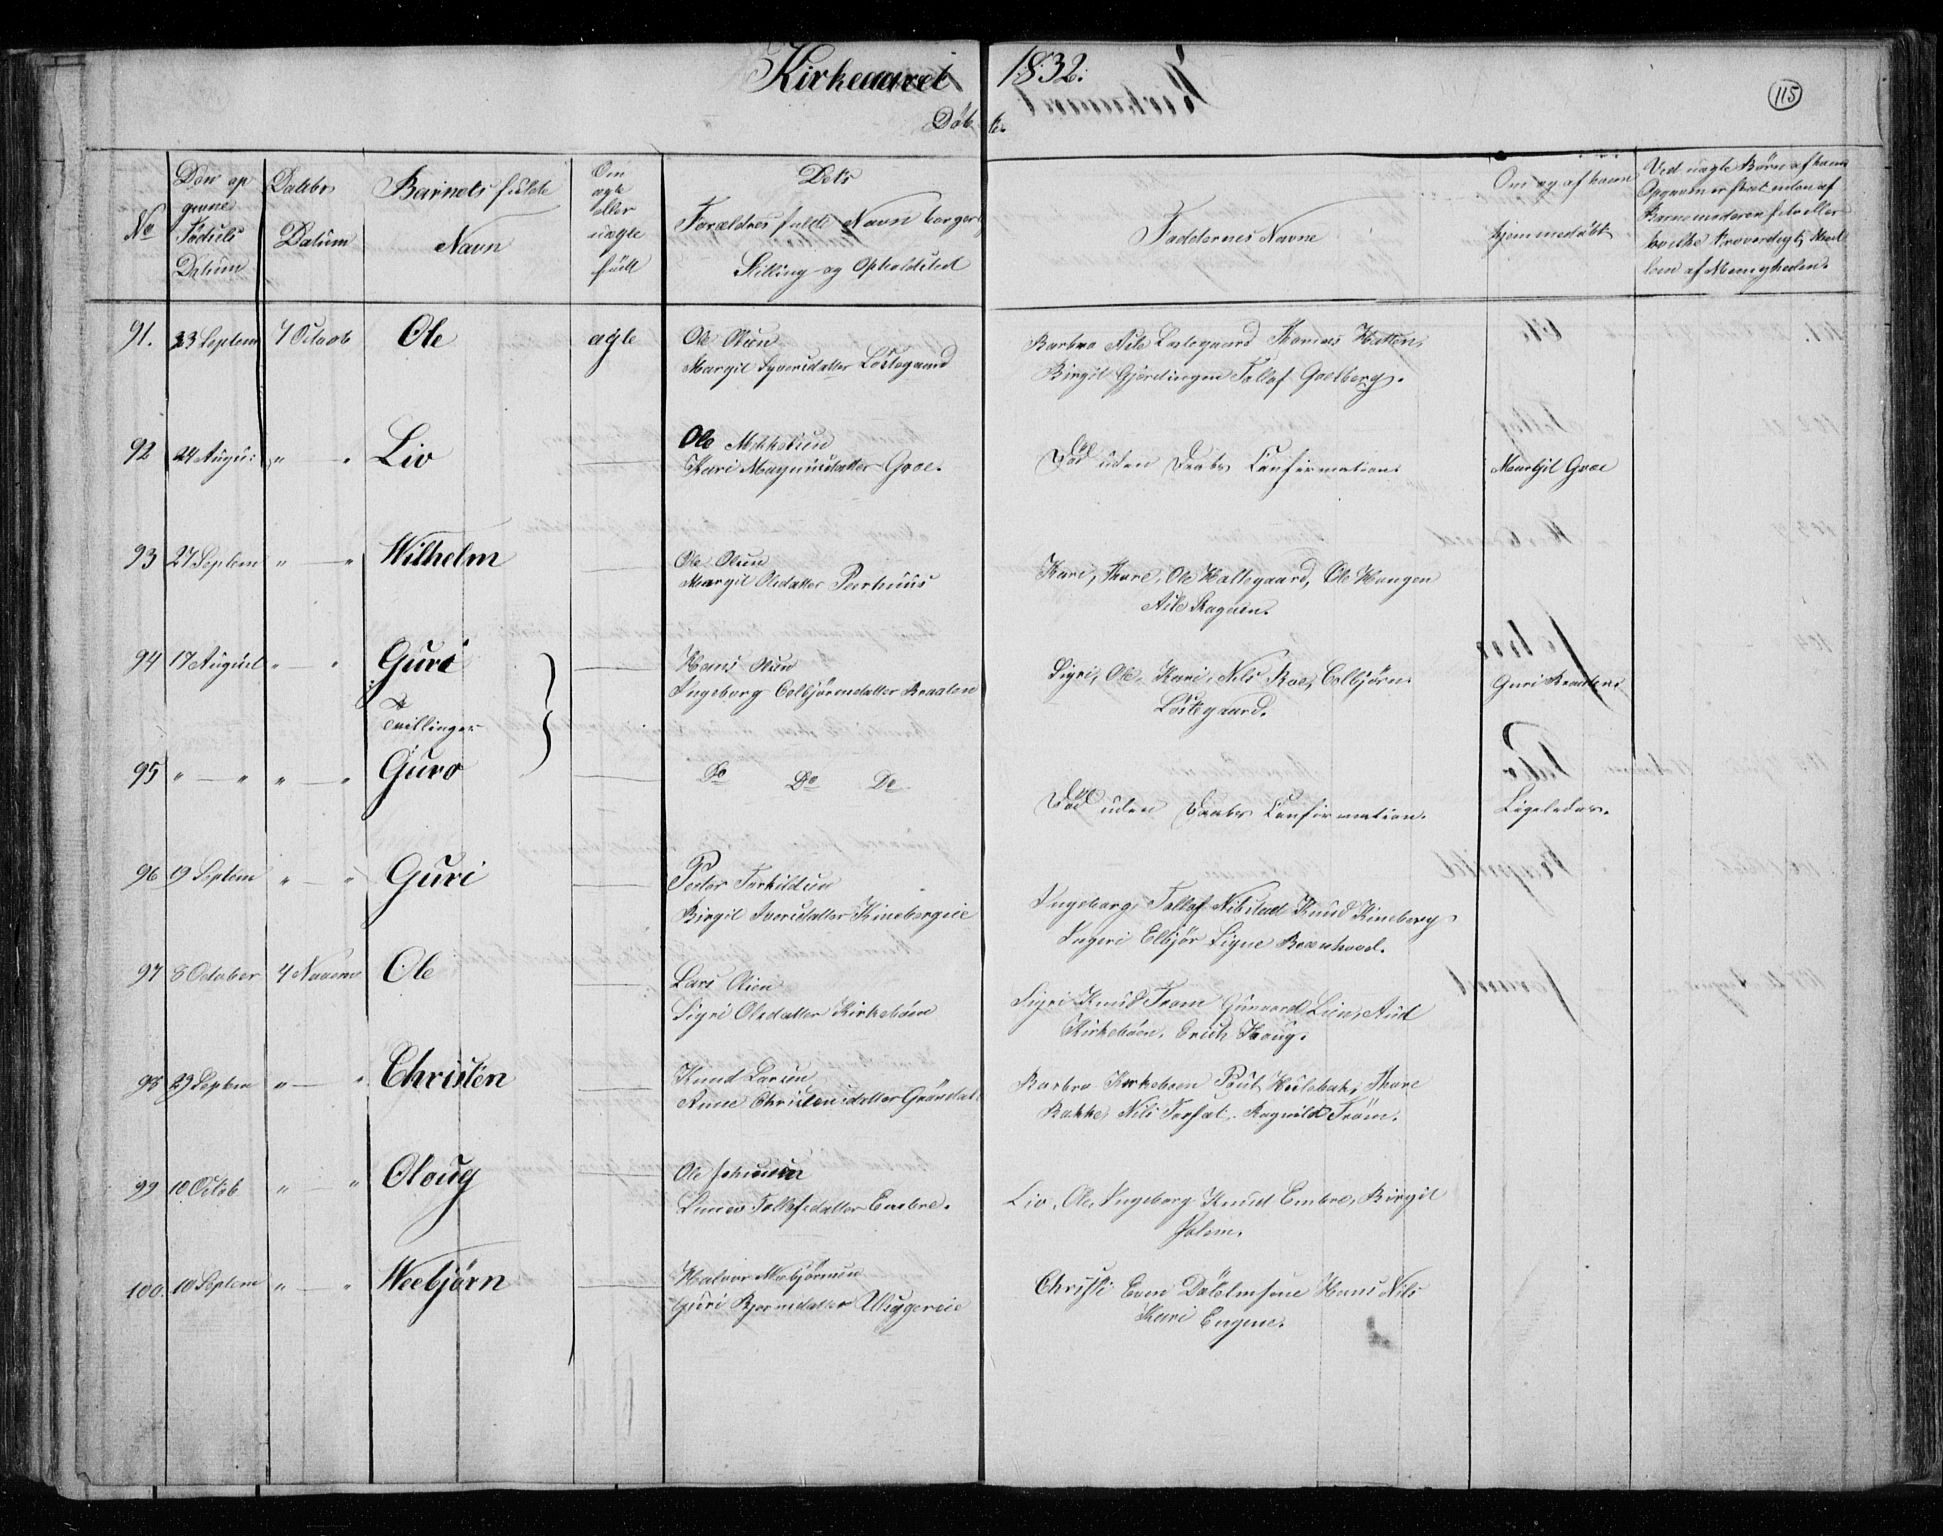 Kirkeaaret 1832.
115
Döbte.
No
Den op
givne
Födsels
Datum
Daabs
Datum
Barnets fulde
Navn
Om
ægte
eller
uægte
föd
Dets
Forældres fulde Navn borgerl.
Stilling og Opholdsted
Faddernes Navne
Om og af hvem
hjemmedöbt
Ved uægte Börn af hvem
Opgaven er skeet enten af
Barnemoderen selv eller
hvilke troværdigt Med
lem af Menigheden.
91. 23 Septem 7 Octob Ole ægte Ole Olsen
Margit Syversdatter Löstegaard
Barbra Nils Löstegaard Thomas Hatten,
Birgit Gjerdingen Tollef Golberg.
92 24 Augus: " — " Liv — Ole Mikkelsen
Kari Magnusdatter Groe.
Död uden Daabs Confirmation. Margit Groe
93 27 Septem " — " Wilhelm — Ole Olsen
Margit Olsdatter Perhuus
Kari, Thore, Ole Haltegaard, Ole Haugen
Nils Kaguen.
94 17 August " — " Guri — Hans Olsen
Ingeborg Colbjörnsdatter Braaten
Sigri, Ole, Kari, Nils Roe, Colbjörn
Löstegaard.
Guri Braaten
Tvillinger
95 " — " " — " Guro — Do Do Do
Död uden Daabs Confirmation. Ligeledes.
96 19 Septem " — " Guri — Peder Terkildsen
Birgit Iversdatter Kinebergeie
Ingeborg Tollef Nibstad Knud Kineberg
Ingeri Elbjör Signe Boenhoved.
97 8 October 4 Novem Ole Lars Olsen
Sigri Olsdatter Kirkeböen
Sigri Knud Tröm Gunvord Lien, Aud
Kirkeböen, Erich Houg.
98 29 Septem " — " Christen — Knud Larsen
Anne Christensdatter Gröndal
Barbra Kirkeböen Poul Hulebak, Thore
Bakke, Nils Torsat, Ragnild Tröm.
99 10 Octob " — " Oloug — Ole Johnsen
Tollefsdatter Embre.
Liv, Ole, Ingeborg Knud Embre, Birgit
100. 10 Septem " — " Weebjörn — Halvor Webjörnsen
Guri Björnsdatter Uhggereie
Christi Even Hans Nils
Kari Engene.